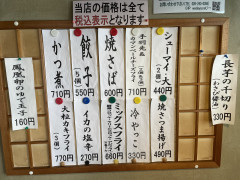 当店の価格は全て
税込表示となります。
長芋の千切り
(わさび醤油)
330円
シューマイ大
(2個)
440円
焼さば
600円
餃子
(5個)
550円
かつ煮
710円
鳳凰卵のゆで玉子
160円
焼さつま揚げ
490円
冷やっこ
330円
ミックスフライ
660円
イカの塩辛
270円
大粒カキフライ
(5個)
770円